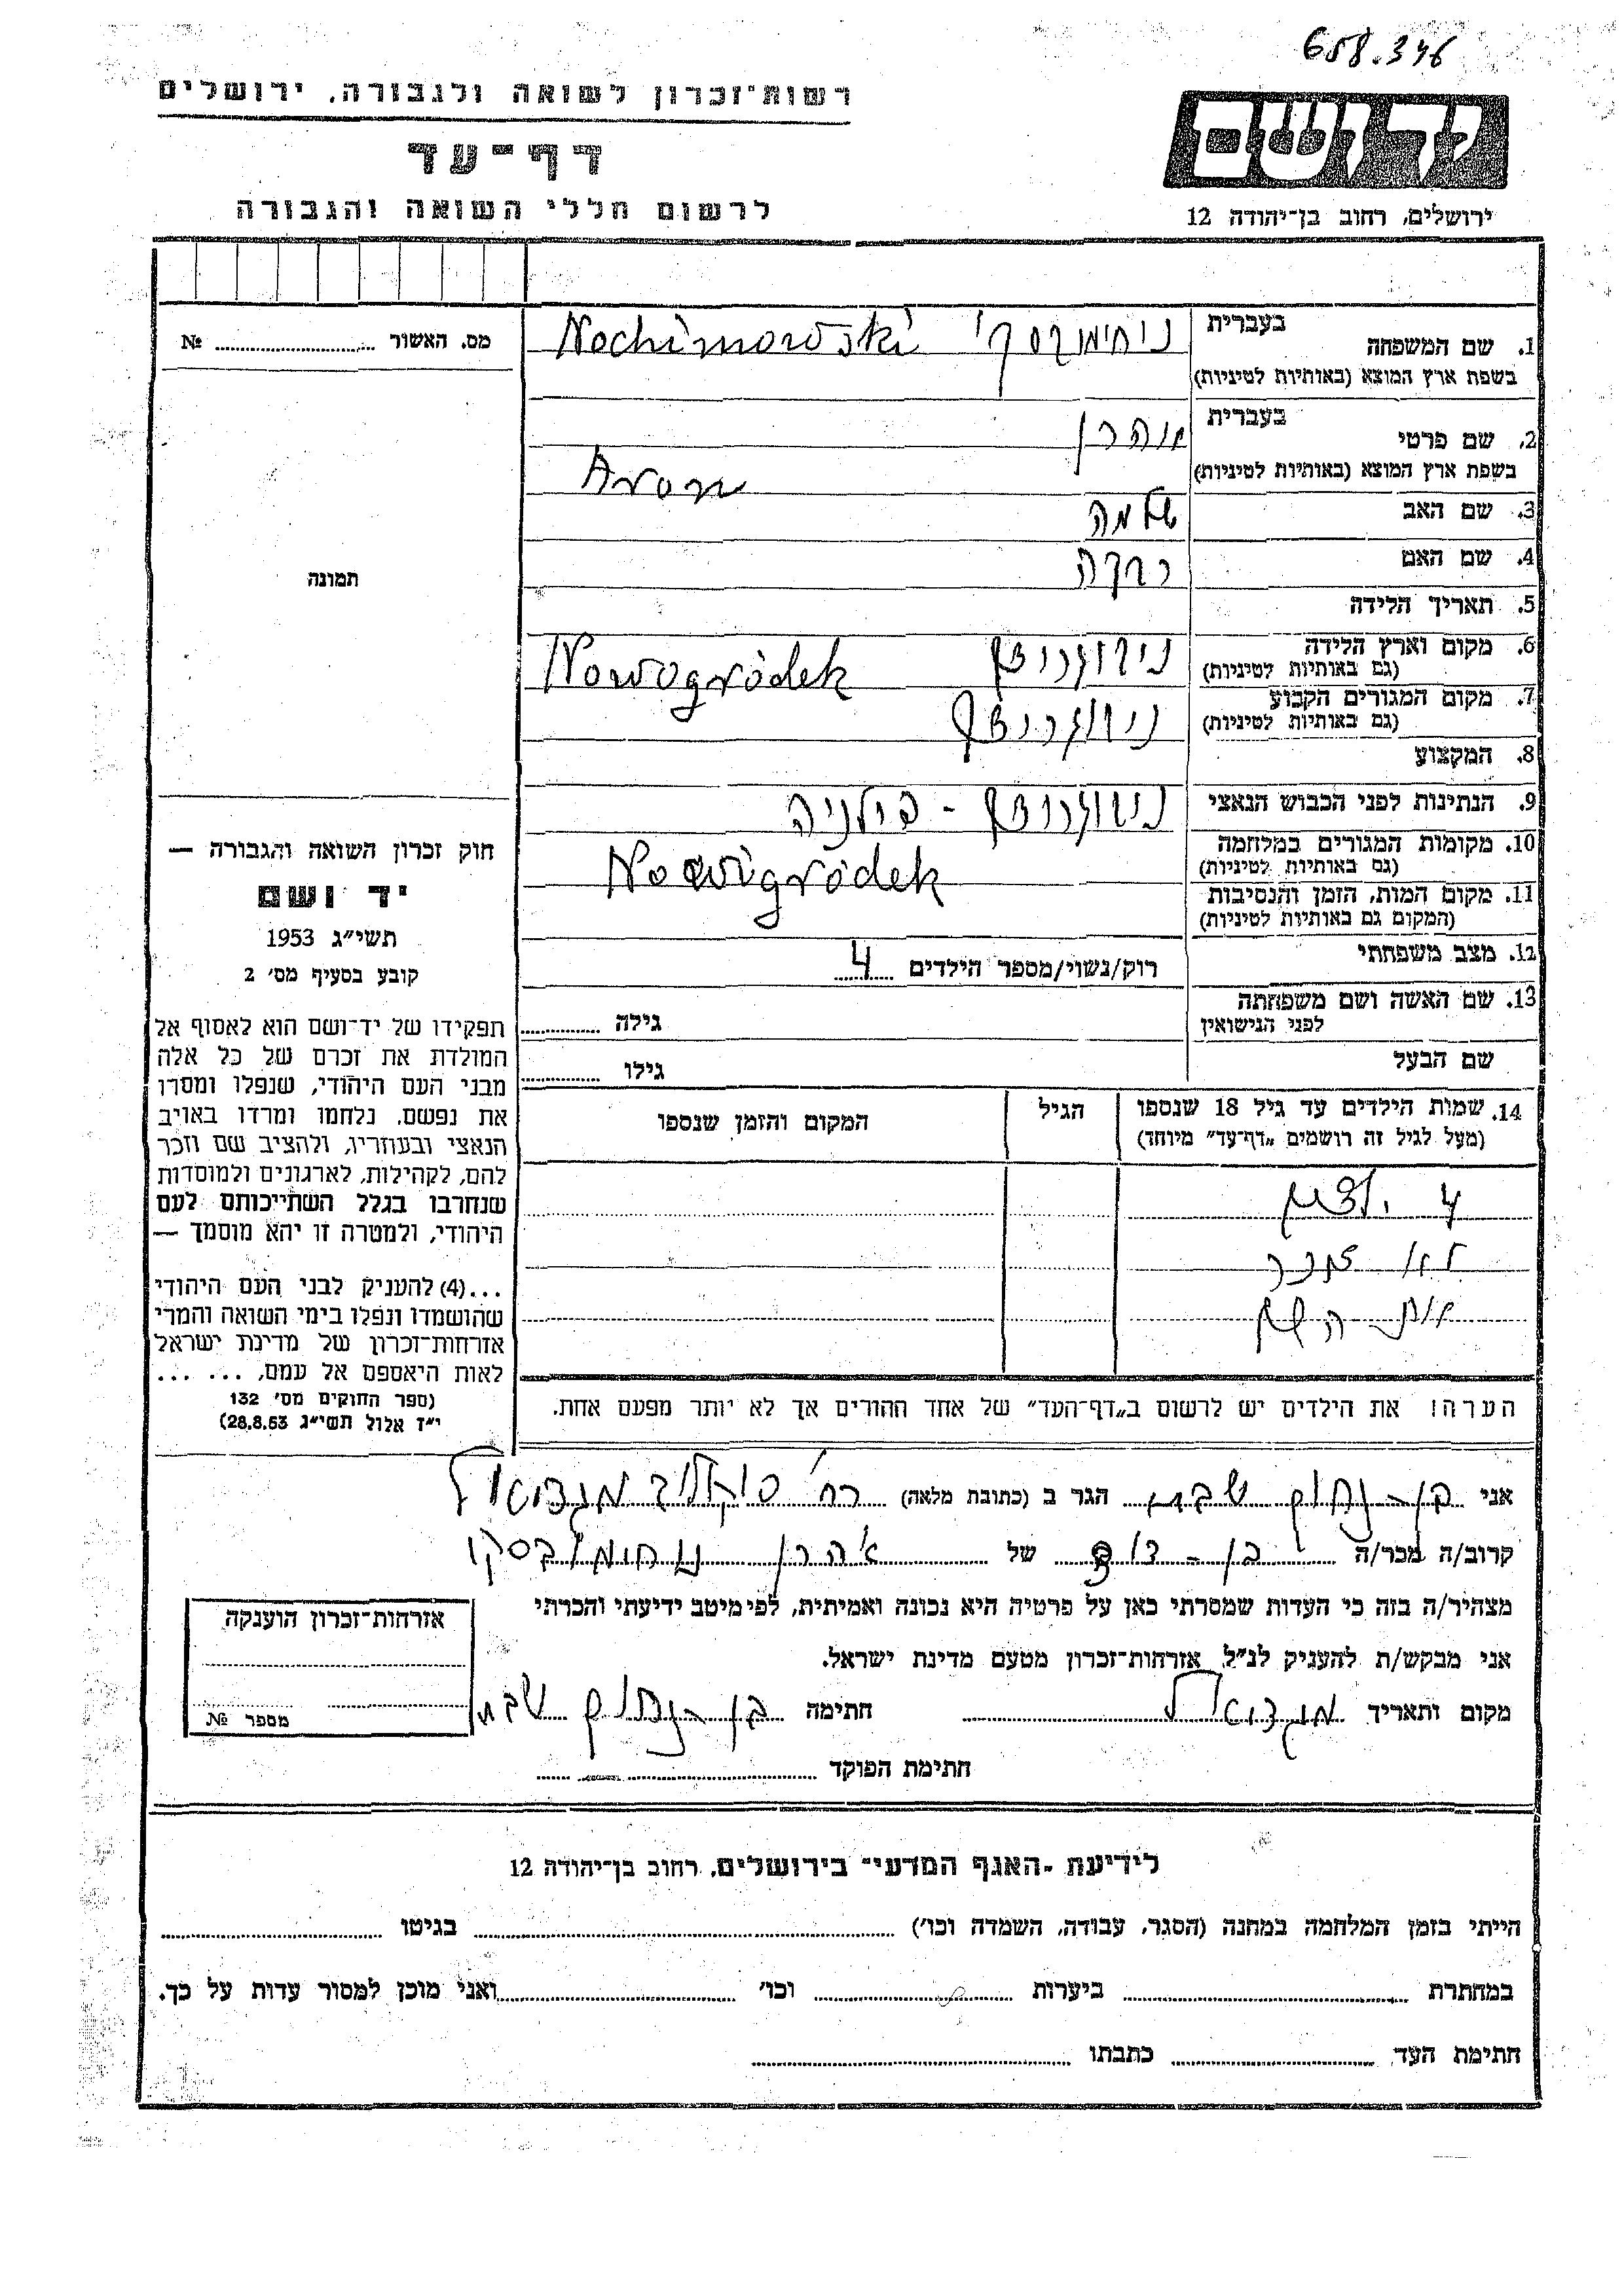 658.346
רשות־זכרון לשואה ולגבורה, ירושלים
דף־עד
לרשום חללי השואה והגבורה
יד ושם
ירושלים, רחוב בן־יהודה 12
מס. האשור № 
בעברית
1. שם המשפחה
בשפת ארץ המוצא (באותיות לטיניות)
Nochimowski
2. שם פרטי בעברית
אהרן
בשפת ארץ המוצא (באותיות לטיניות)
Aron
3. שם האב שלמה
4. שם האם רבקה
5. תאריך הלידה
6. מקום וארץ הלידה
(גם באותיות לטיניות)
Nowogródek
7. מקום המגורים הקבוע
(גם באותיות לטיניות)
8. המקצוע
9. הנתינות לפני הכבוש הנאצי
10. מקומות המגורים במלחמה
(גם באותיות לטיניות)
Nowigródek
11. מקום המות, הזמן והנסיבות
(המקום גם באותיות לטיניות)
12. מצב משפחתי רוק/נשוי/מספר הילדים 4
13. שם האשה ושם משפחתה
לפני הנישואין
גילה
שם הבעל
גילו
14. שמות הילדים עד גיל 18 שנספו
(מעל לגיל זה רושמים „דף־עד" מיוחד)
הגיל
המקום והזמן שנספו
4 ילדים
לא זוכר
את השם
הערה! את הילדים יש לרשום ב„דף־העד" של אחד ההורים אך לא יותר מפעם אחת.
תמונה
חוק זכרון השואה והגבורה —
יד ושם
תשי"ג 1953
קובע בסעיף מס' 2
תפקידו של יד־ושם הוא לאסוף אל
המולדת את זכרם של כל אלה
מבני העם היהודי, שנפלו ומסרו
את נפשם, נלחמו ומרדו באויב
הנאצי ובעוזריו, ולהציב שם וזכר
להם, לקהילות, לארגונים ולמוסדות
שנחרבו בגלל השתייכותם לעם
היהודי, ולמטרה זו יהא מוסמך —
...(4) להעניק לבני העם היהודי
שהושמדו ונפלו בימי השואה והמרי
אזרחות־זכרון של מדינת ישראל
לאות היאספם אל עמם, ... ...
(ספר החוקים מס' 132
י"ז אלול תשי"ג 28.8.53)
אני בן-נחום שבת הגר ב (כתובת מלאה) רח' סוקולוב מגדיאל
קרוב/ה מכר/ה בן-דוד של אהרן נחומובסקי
מצהיר/ה בזה כי העדות שמסרתי כאן על פרטיה היא נכונה ואמיתית, לפי מיטב ידיעתי והכרתי
אני מבקש/ת להעניק לנ"ל, אזרחות־זכרון מטעם מדינת ישראל.
מקום ותאריך מגדיאל חתימה בן-נחום שבת
חתימת הפוקד
אזרחות־זכרון הוענקה
מספר №
לידיעת ־האגף המדעי־ בירושלים, רחוב בן־יהודה 12
הייתי בזמן המלחמה במחנה (הסגר, עבודה, השמדה וכו') בגיטו
במחתרת ביערות וכו' ואני מוכן למסור עדות על כך.
חתימת העד כתבתו